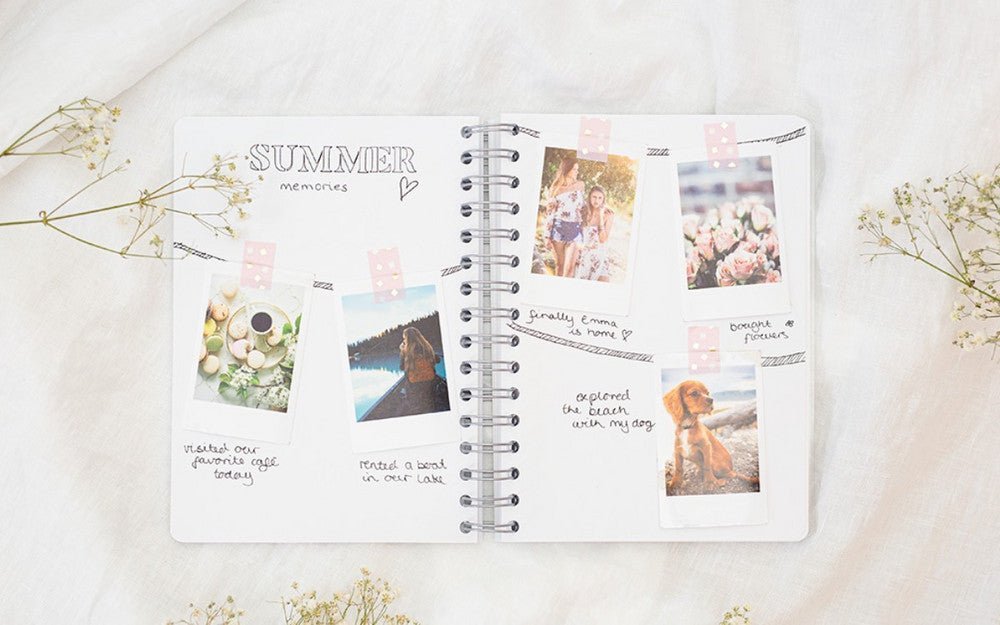 SUMMER
memories
visited our
favorite café
today
rented a boat
in our lake
finally Emma
is home
bought
flowers
explored
the beach
with my dog